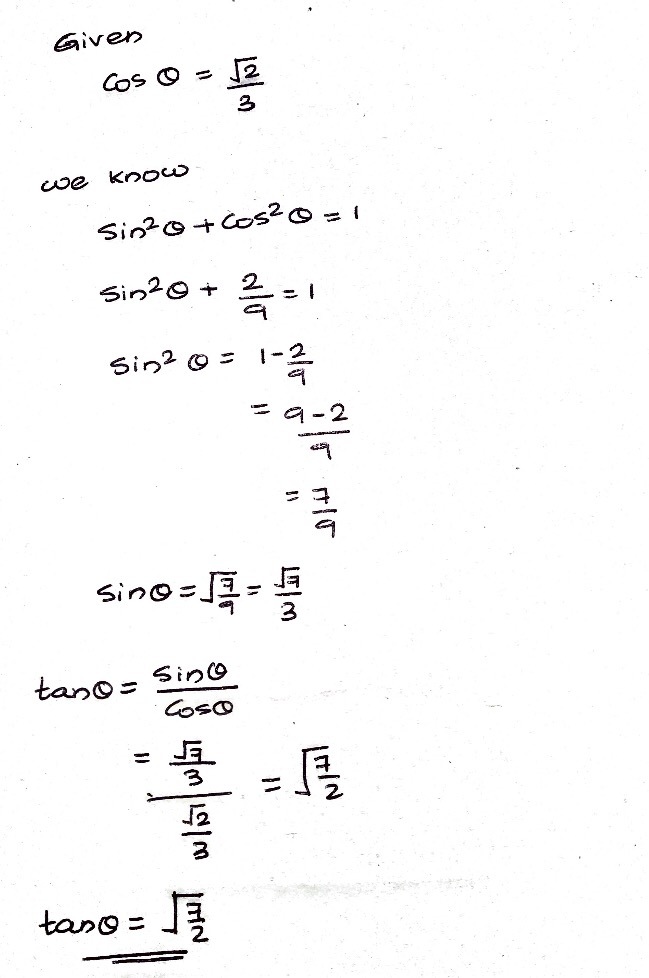 Given
cos θ = √2/3
we know
sin²θ + cos²θ = 1
sin²θ + 2/9 = 1
sin²θ = 1 - 2/9
= 9-2/9
= 7/9
sinθ = √7/9 = √7/3
tanθ = sinθ/cosθ
= √7/3 / √2/3 = √7/2
tanθ = √7/2